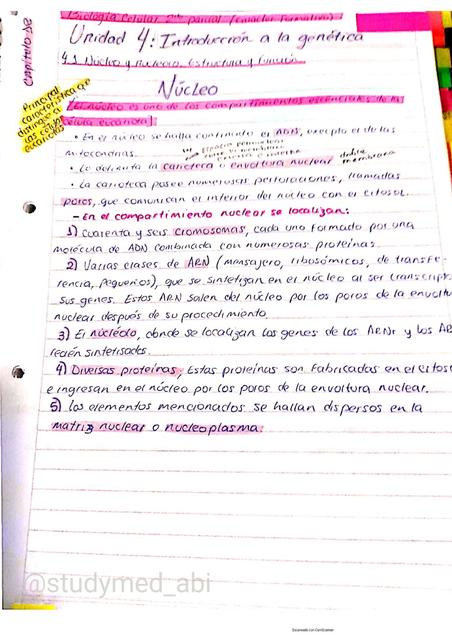 Biología Celular 2do parcial (caracter Formativo)
Unidad 4: Introducción a la genética
4.1 Núcleo y Nucleolo. Estructura y función
CAPÍTULO DE
Principal característica que distingue a las células eucariotas
Núcleo
[El núcleo es uno de los compartimientos esenciales de la
célula eucariota]
• En el núcleo se halla confinado el ADN, excepto el de las
mitocondrias.
• Lo delimita la carioteca o envoltura nuclear doble membrana
• La carioteca posee numerosas perforaciones, llamadas
poros, que comunican el interior del núcleo con el citosol.
- En el compartimiento nuclear se localizan:
1) Cuarenta y seis cromosomas, cada uno formado por una
molécula de ADN combinada con numerosas proteínas.
2) Varias clases de ARN (mensajero, ribosómicos, de transfe-
rencia, pequeños), que se sintetizan en el núcleo al ser transcript
sus genes. Estos ARN salen del núcleo por los poros de la envoltu
nuclear después de su procedimiento.
3) El nucléolo, donde se localizan los genes de los ARNr y los AR
recién sintetisados.
4) Diversas proteínas, Estas proteínas son fabricadas en el citos
e ingresan en el núcleo por los poros de la envoltura nuclear.
5) Los elementos mencionados se hallan dispersos en la
matriz nuclear o nucleoplasma.
@studymed_abi
Escaneado con CamScanner